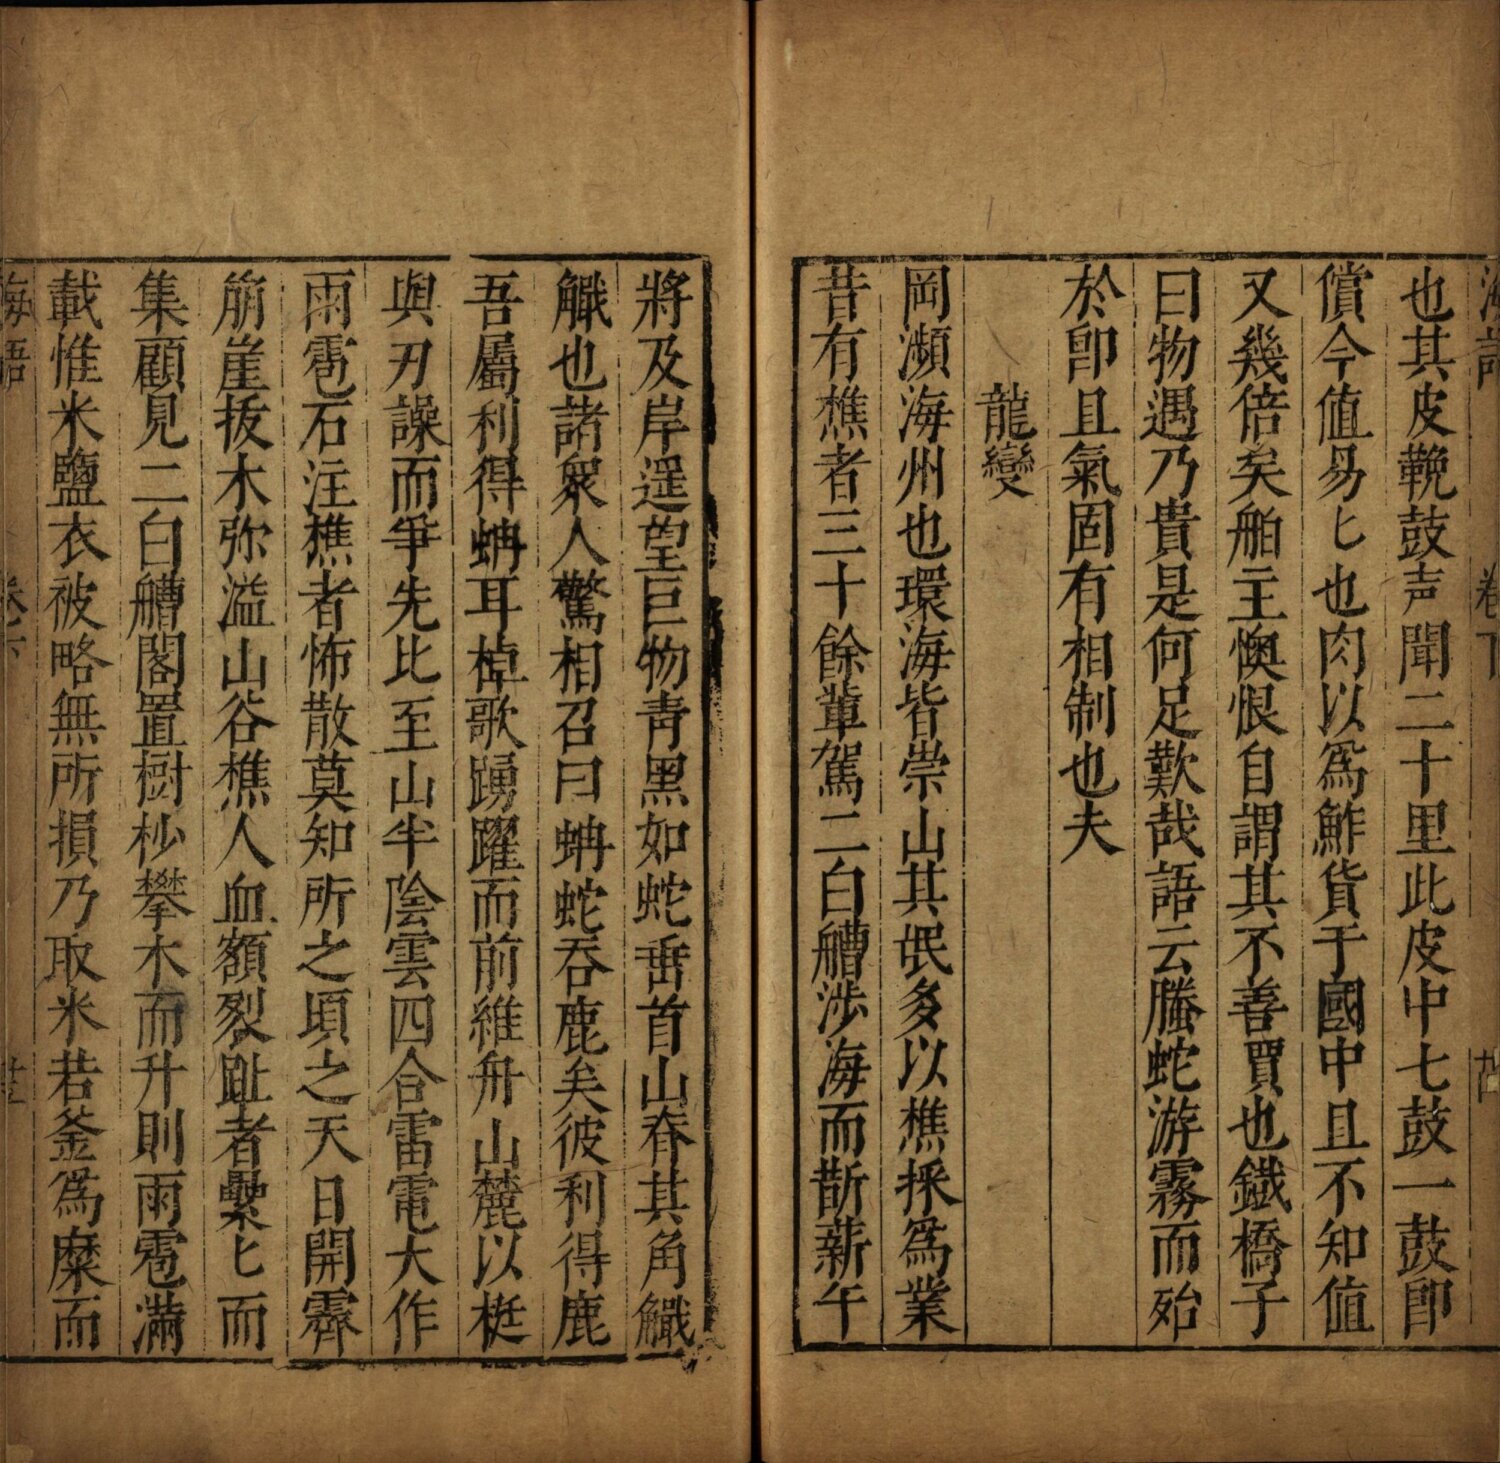 海語 卷下
也其皮鞔鼓声聞二十里此皮中七鼓一鼓即
償今值易匕也肉以爲鮓貨于國中且不知值
又幾倍矣舶主懊恨自謂其不善賈也鐵橋子
曰物遇乃貴是何足歎哉語云螣蛇游霧而殆
於即且氣固有相制也夫
龍變
岡瀕海州也環海皆崇山其民多以樵採爲業
昔有樵者三十餘輩駕二白艚涉海而斮薪午
將及岸遥望巨物青黑如蛇垂首山脊其角觿
觿也諸衆人驚相召曰蚺蛇吞鹿矣彼利得鹿
吾屬利得蚺耳棹歌踴躍而前維舟山麓以梃
與刃譟而爭先比至山半陰雲四合雷電大作
雨雹石注樵者怖散莫知所之頃之天日開霽
崩崖拔木弥溢山谷樵人血額裂趾者纍匕而
集顧見二白艚閣置樹杪攀木而升則雨雹滿
載惟米鹽衣被略無所損乃取米若釜爲糜而
海語 卷下